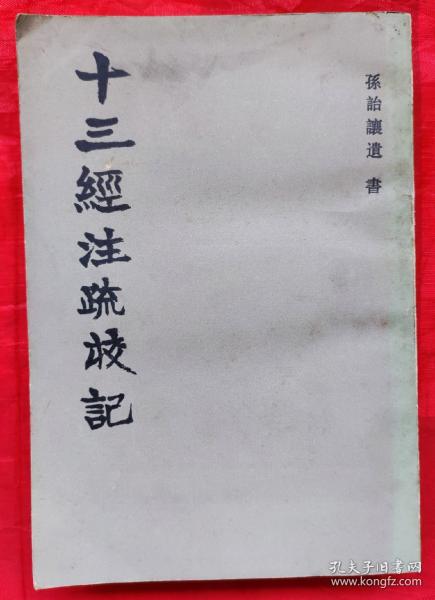 孫詒讓遺書
十三經注疏校記
孔夫子旧书网
www.kongfz.com